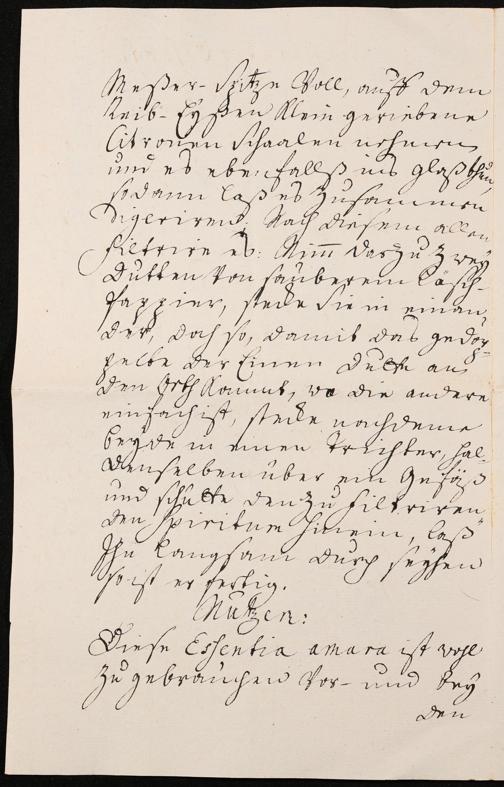 Meßer-Spitze Voll, auff dem
Reib-Eyßen Klein geriebene
Citronen Schaalen nehmen
und es ebenfallß ins Glaß thun
sodann laß es Zusammen
digeriren. Nach diesem allen
filtrire es: Nimm darzu Zwey
Dutten von sauberem Läsch-
Pappier, stecke Sie in einan-
der, doch so, damit das gedop-
pelte der Einen Dutte an
den Orth Kommt, wo die andere
einfach ist, stecke nachdeme
beyde in einen Trichter, hal-
denselben über ein Gefäß
und schütte den Zu filtriren-
den Spiritum hinein, laß
Ihn langsam durch seyhen
so ist er fertig.
Nutzen:
Diese Essentia amara ist wohl
Zu gebrauchen Vor- und bey
den